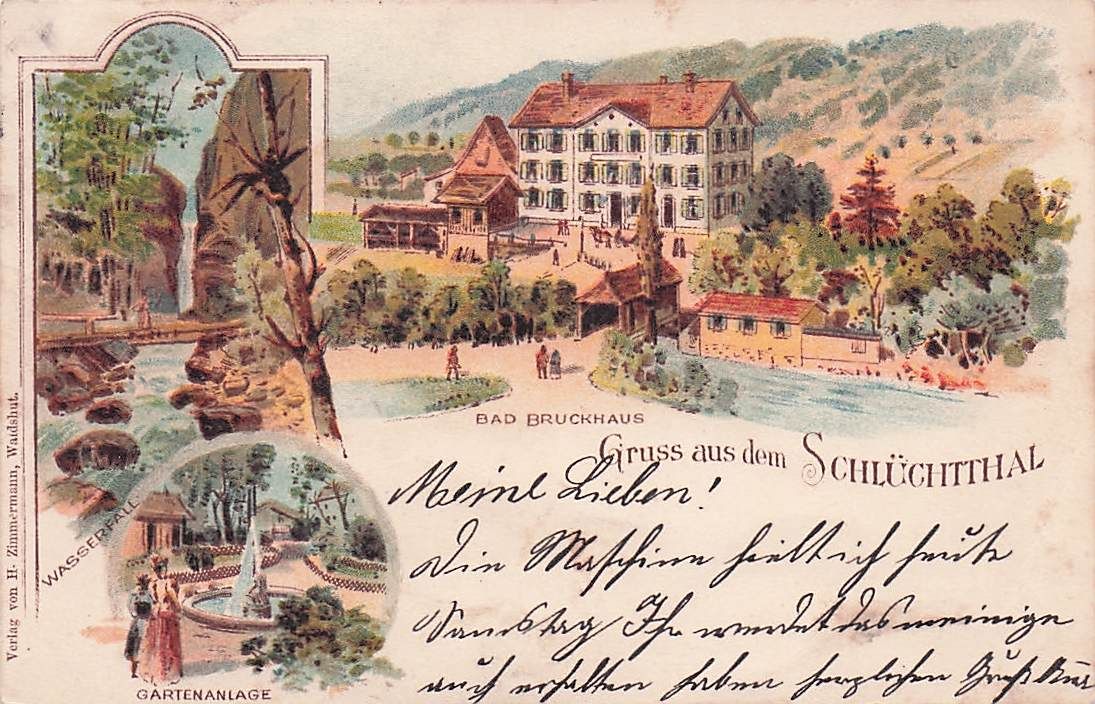 BAD BRUCKHAUS
Gruss aus dem SCHLÜCHTTHAL
WASSERFALL
GARTENANLAGE
Verlag von H. Zimmermann, Waldshut.
Meine Lieben!
Die Maschine hielt ich heute
Samstag Ihr werdet das meinige
auch erhalten haben herzlichen Gruß